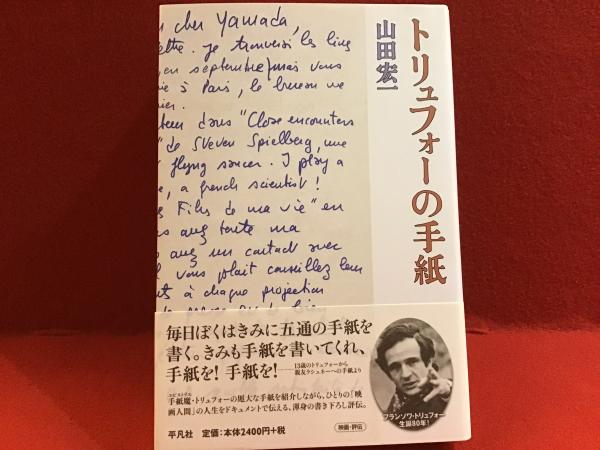 トリュフォーの手紙
山田宏一
cher Yamada,
je trouverai les livres
en septembre, mais vous
à Paris, le bureau me
dans "Close encounters
" de Steven Spielberg, une
flying saucer. I play a
, a french scientist!
Films de ma vie" en
toute ma
un contact avec
vous plait conseillez leur
à chaque projection
毎日ぼくはきみに五通の手紙を
書く。きみも手紙を書いてくれ、
手紙を! 手紙を!
13歳のトリュフォーから
親友ラシュネーへの手紙より
手紙魔・トリュフォーの厖大な手紙を紹介しながら、ひとりの「映
画人間」の人生をドキュメントで伝える、渾身の書き下ろし評伝。
平凡社 定価:本体2400円+税
映画・評伝
フランソワ・トリュフォー
生誕80年!